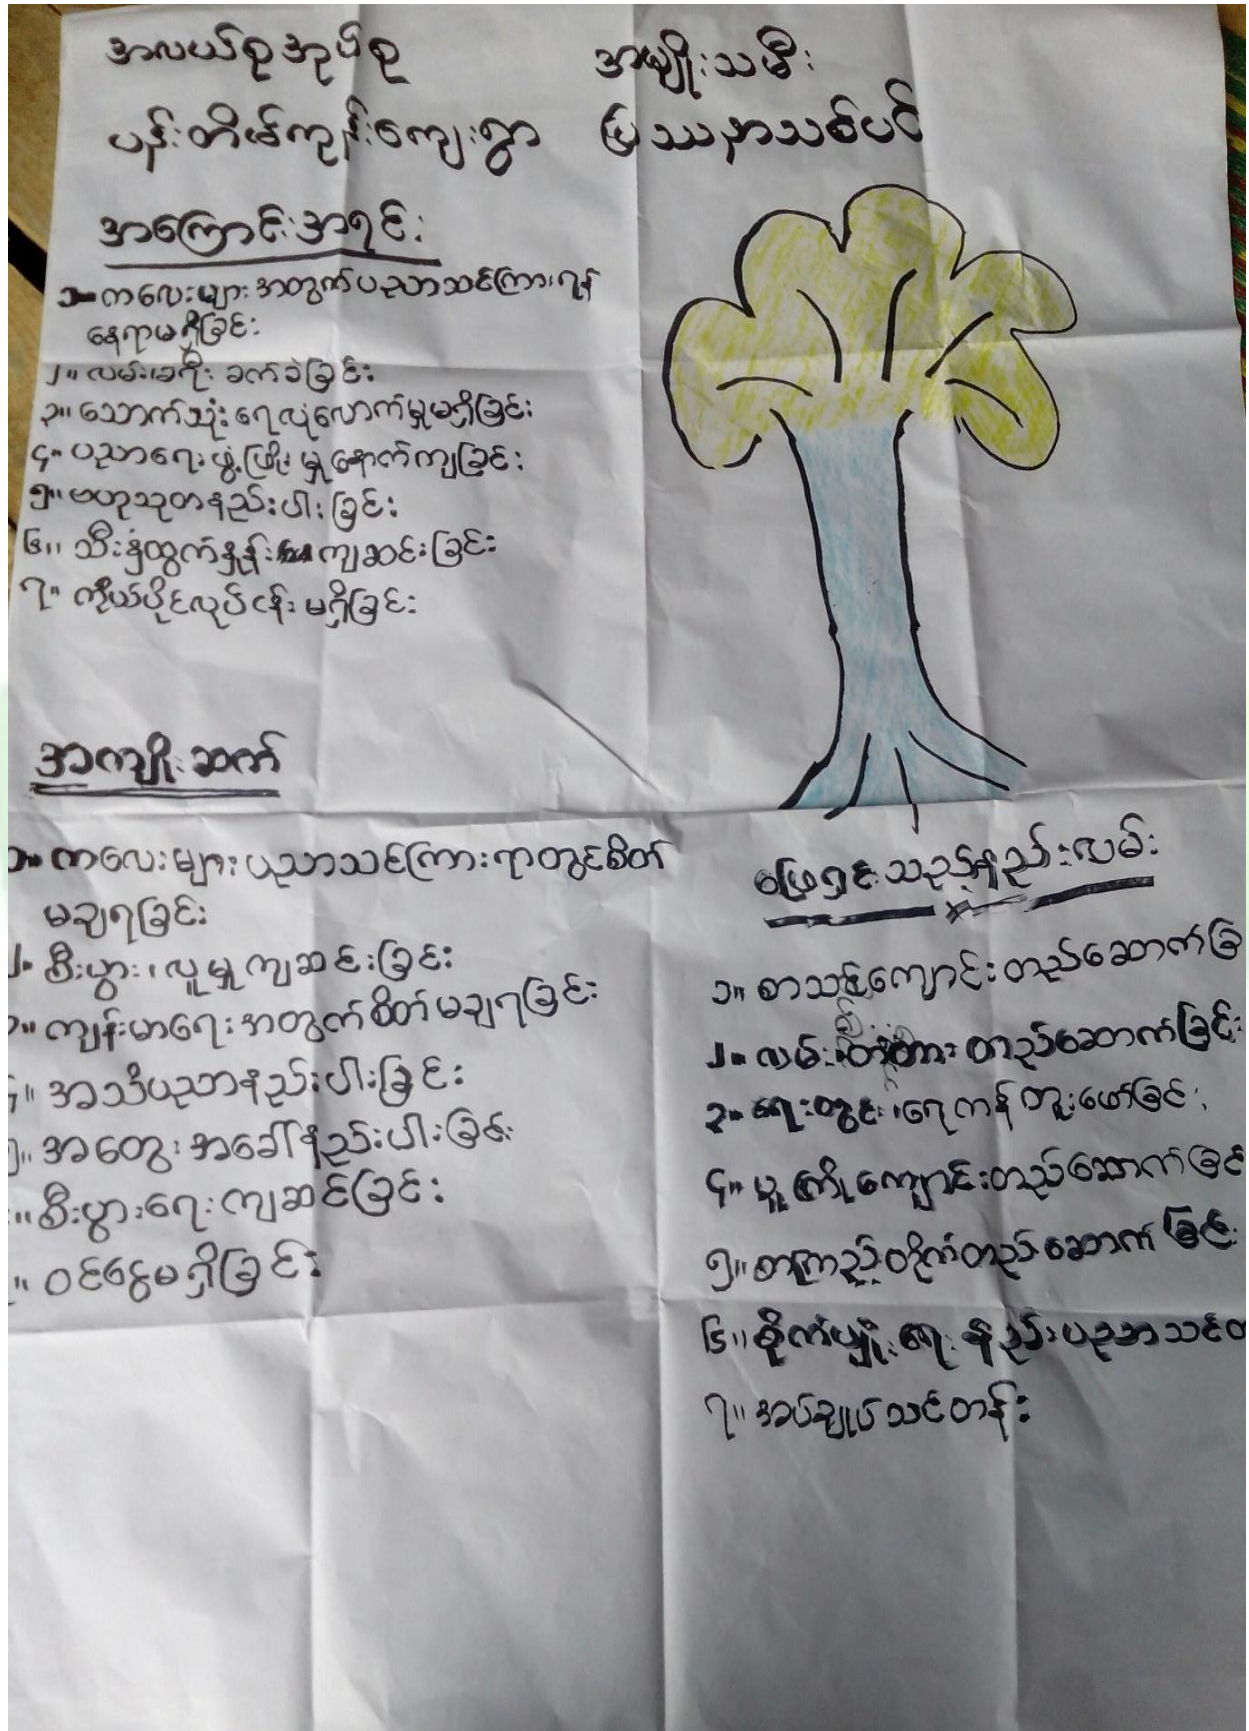 အလယ်စုအုပ်စု အမျိုးသမီး
ပန်းတိမ်ကုန်းကျေးရွာ ပြဿနာသစ်ပင်
အကြောင်းအရင်း
၁။ ကလေးများအတွက်ပညာသင်ကြားရန်
နေရာမရှိခြင်း
၂။ လမ်းခရီး ခက်ခဲခြင်း
၃။ သောက်သုံးရေလုံလောက်မှုမရှိခြင်း
၄။ ပညာရေးဖွံ့ဖြိုးမှုနောက်ကျခြင်း
၅။ ဗဟုသုတနည်းပါးခြင်း
၆။ သီးနှံထွက်နှုန်း ကျဆင်းခြင်း
၇။ ကိုယ်ပိုင်လုပ်ငန်း မရှိခြင်း
အကျိုးဆက်
၁။ ကလေးများပညာသင်ကြားရာတွင်စိတ်
မချရခြင်း
၂။ စီးပွား၊ လူမှုကျဆင်းခြင်း
၃။ ကျန်းမာရေးအတွက်စိတ်မချရခြင်း
၄။ အသိပညာနည်းပါးခြင်း
၅။ အတွေးအခေါ်နည်းပါးခြင်း
။ စီးပွားရေးကျဆင်ခြင်း
။ ဝင်ငွေမရှိခြင်း
ဖြေရှင်းသည့်နည်းလမ်း
၁။ စာသင်ကျောင်းတည်ဆောက်ခြ
၂။ လမ်း တံတား တည်ဆောက်ခြင်း
၃။ ရေတွင်း၊ ရေကန်တူးဖော်ခြင်း
၄။ မူကြိုကျောင်းတည်ဆောက်ခြင်
၅။ စာကြည့်တိုက်တည်ဆောက်ခြင်း
၆။ စိုက်ပျိုးရေးနည်းပညာသင်တ
၇။ အပ်ချုပ်သင်တန်း